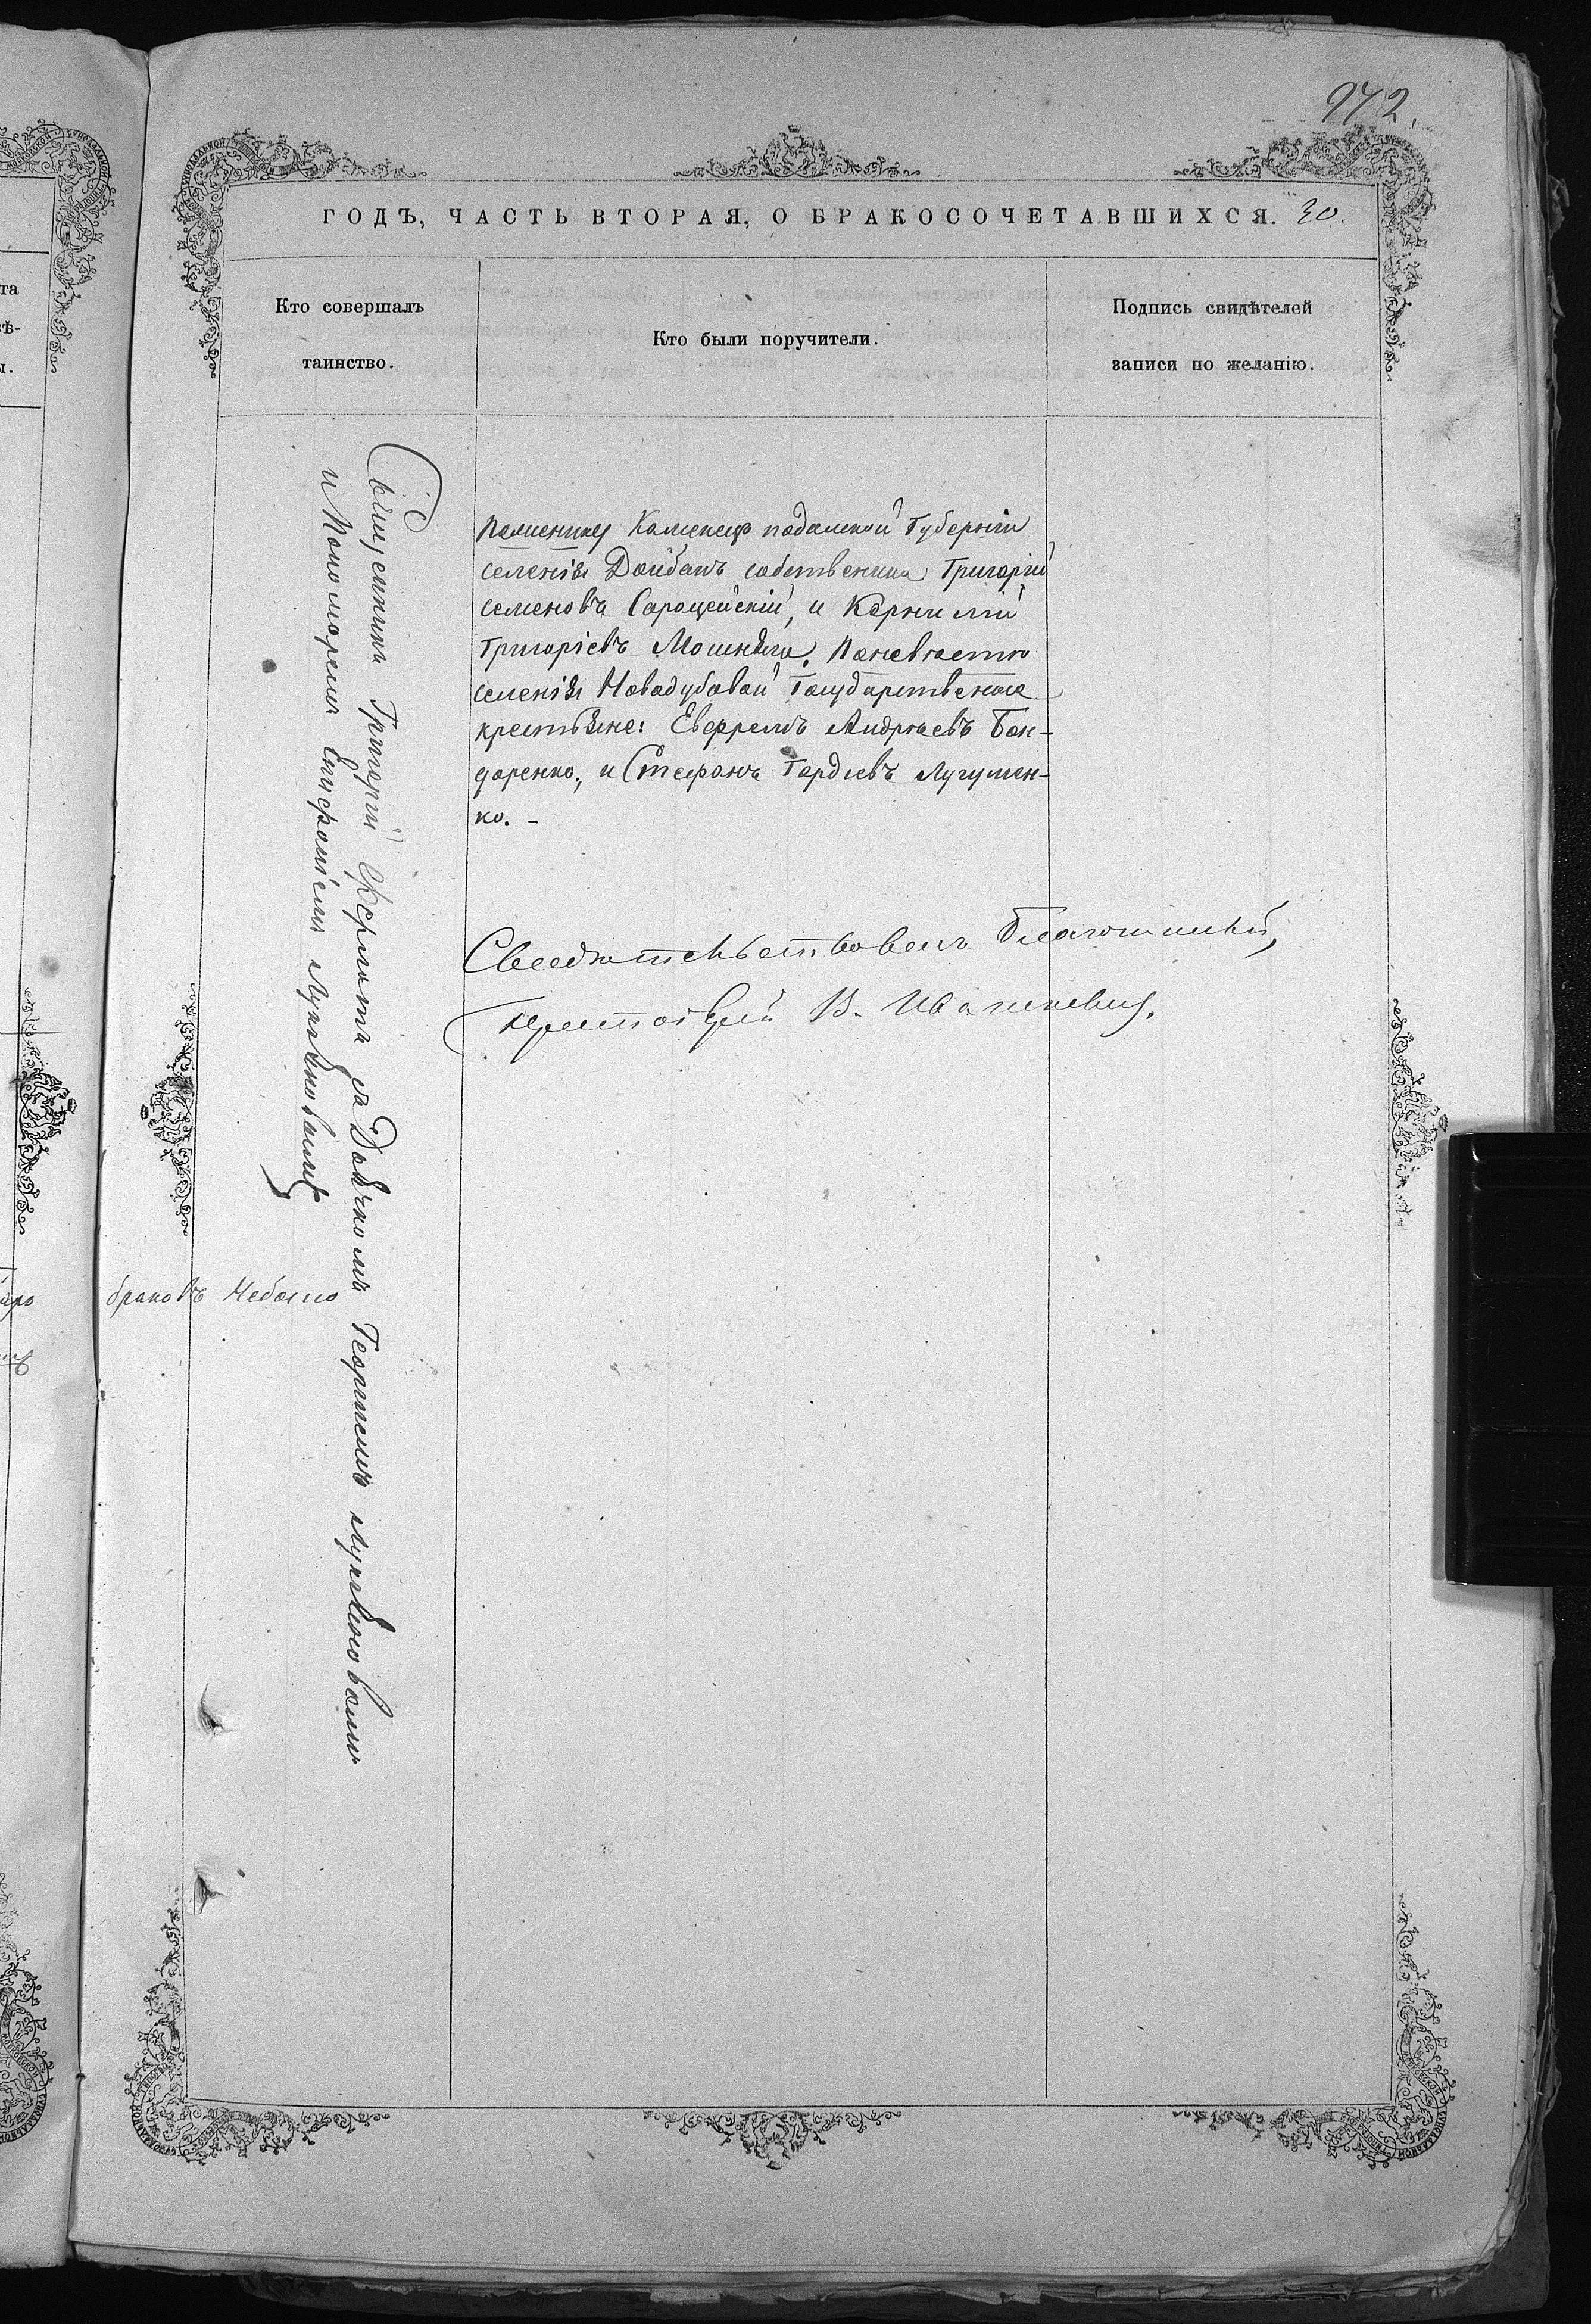 942.
ГОДЪ, ЧАСТЬ ВТОРАЯ, О БРАКОСОЧЕТАВШИХСЯ. 30.
Кто совершалъ
таинство.
Кто были поручители.
Подпись свидѣтелей
записи по желанію.
Священникъ Григорій съ Дьячкомъ Георгіемъ Лукьяновымъ
и Пономаремъ Епифаніемъ Лукьяновымъ
По женихѣ Каменецъ подольской Губерніи
селенія собственики Григорій
Семеновъ Сарацейскій, и Корнилій
Григоріевъ Мошняга. По невѣстѣ
селенія Новодубовой Государственые
крестьяне: Андрѣевъ Бон-
даренко, и Стефанъ Гордіевъ
ко. -
Свидѣтельствовалъ Благочинный,
Протоіерей В. Ивашкевич.
браковъ Небыло